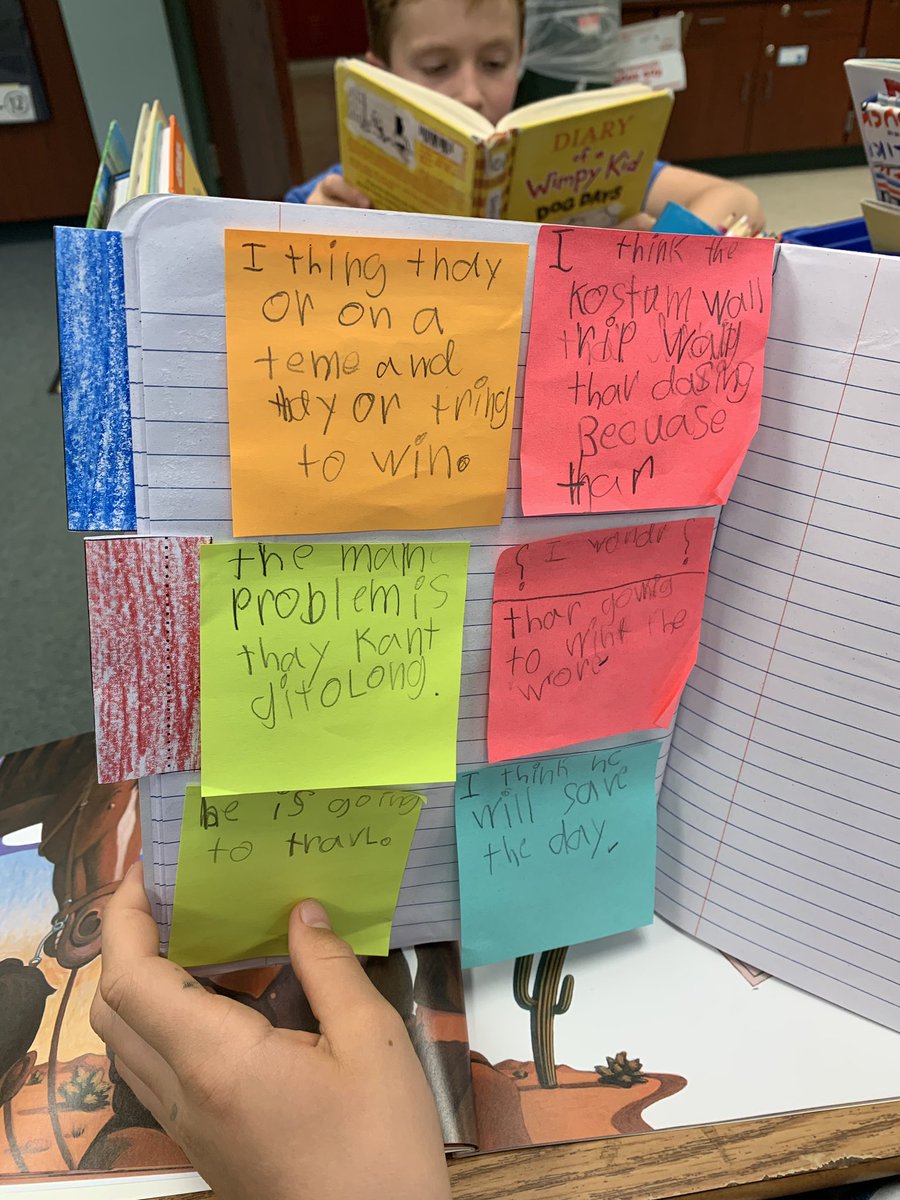 DIARY
of a
Wimpy Kid
DOG DAYS
I thing thay
or on a
teme and
thay or tring
to win.
I think the
Kostum wall
trip Wail
thar dasing
Becuase
thar
the main
problem is
thay kant
gitolong.
I wondr
thar gowing
to wint the
wore
he is going
to travl.
I think he
will save
the day.